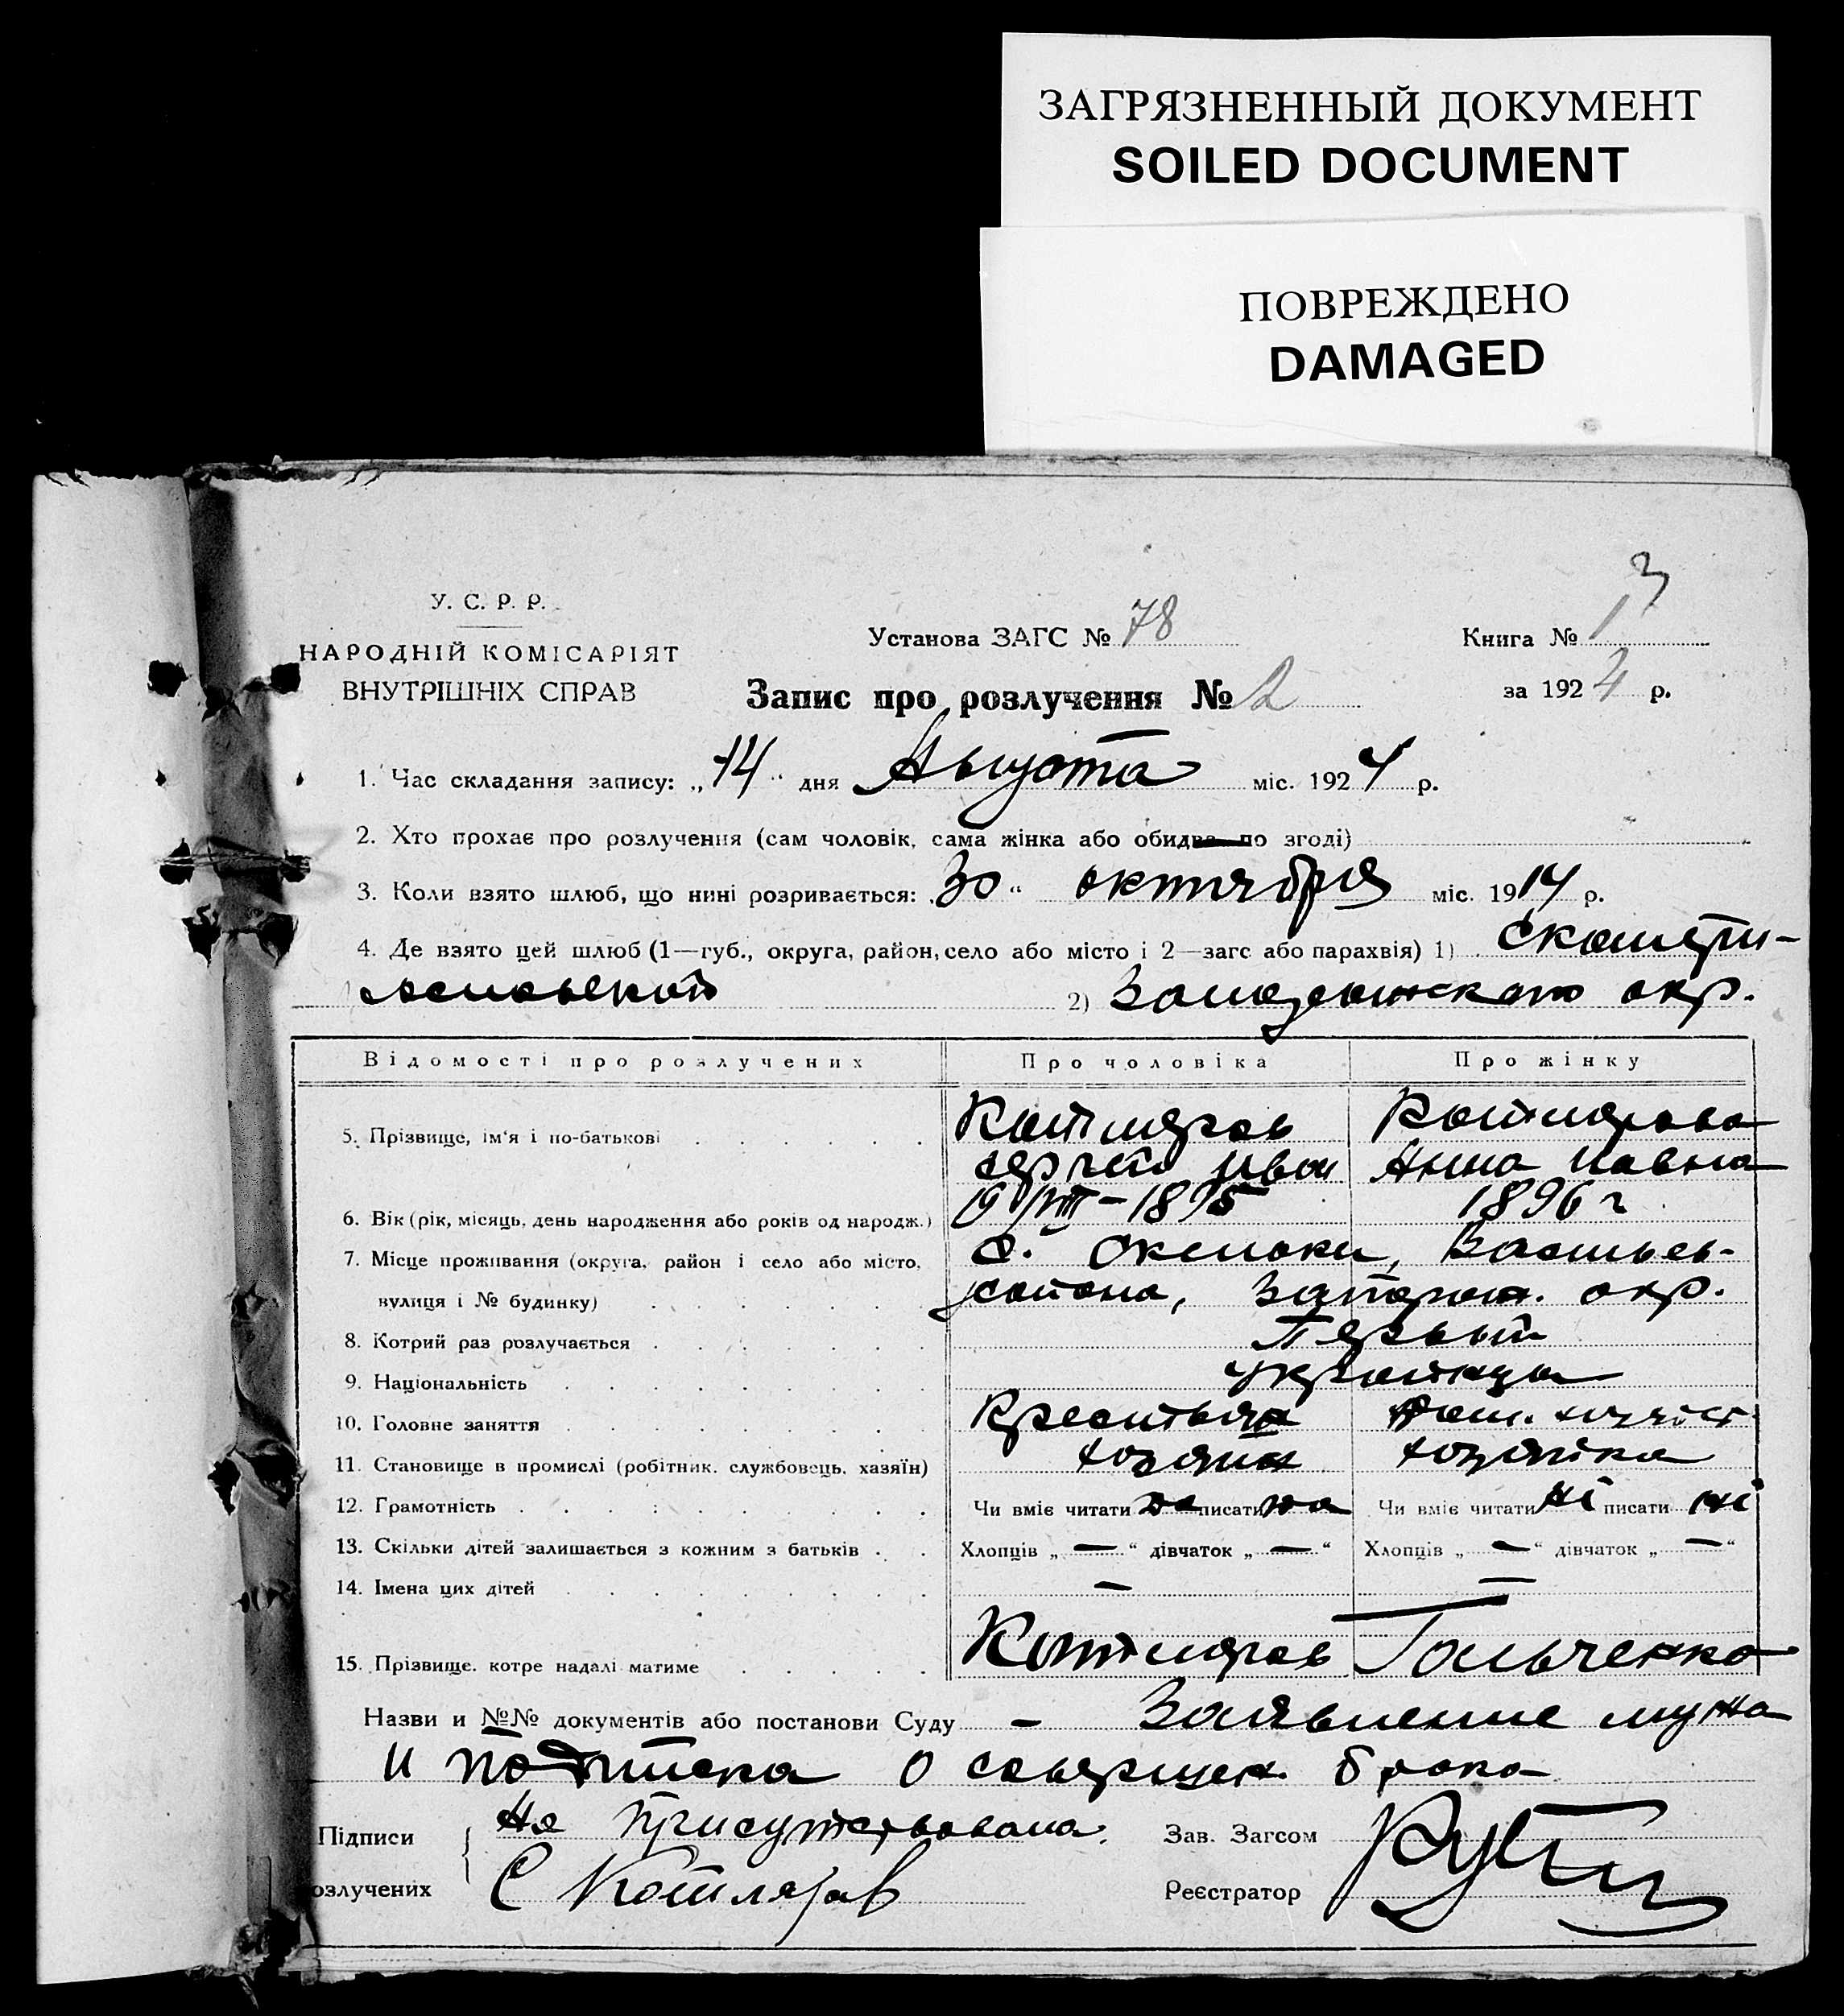 ЗАГРЯЗНЕННЫЙ ДОКУМЕНТ
SOILED DOCUMENT
ПОВРЕЖДЕНО
DAMAGED
3
У. С. Р. Р.
НАРОДНІЙ КОМІСАРІЯТ
ВНУТРІШНІХ СПРАВ
Установа ЗАГС № 78
Книга № 1
Запис про розлучення № 2
за 1924 р.
1. Час складання запису: „14“ дня Августа міс. 1924 р.
2. Хто прохає про розлучення (сам чоловік, сама жінка або обидва по згоді)
3. Коли взято шлюб, що нині розривається: 30“ октября міс. 1914 р.
4. Де взято цей шлюб (1—губ., округа, район, село або місто і 2—загс або парахвія) 1)
2) окр.
Відомості про розлучених Про чоловіка Про жінку
5. Прізвище, ім'я і по-батькові Котляров Котлярова
Сергей Иван Анна
6. Вік (рік, місяць, день народження або років од народж.) 19/VIII–1895 1896 г
7. Місце проживання (округа, район і село або місто, с. Васильев-
вулиця і № будинку) района, Запорож. окр.
8. Котрий раз розлучається Первый
9. Національність украинцы
10. Головне заняття Крестьян Дом. хозяйст
11. Становище в промислі (робітник, службовець, хазяїн) хозяин хозяйка
12. Грамотність Чи вміє читати да писати да Чи вміє читати ні писати ні
13. Скільки дітей залишається з кожним з батьків Хлопців „—“ дівчаток „—“ Хлопців „—“ дівчаток „—“
14. Імена цих дітей — —
15. Прізвище, котре надалі матиме Котляров Гальченко
Назви и №№ документів або постанови Суду — Заявление мужа
и подписка о соверщен. брака
Підписи Не присутствовала. Зав. Загсом
озлучених С Котляров Реєстратор